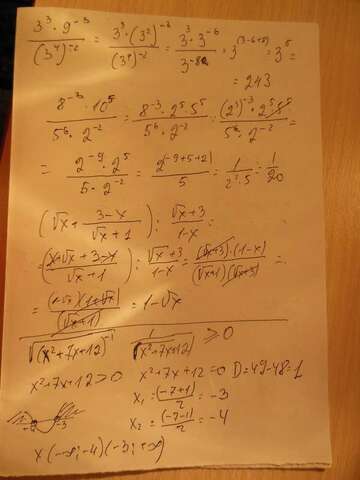 3³ · 9⁻³ / (3⁴)⁻² = 3³ · (3²)⁻³ / (3⁴)⁻² = 3³ · 3⁻⁶ / 3⁻⁸ = 3^(3-6+8) = 3⁵ =
= 243
8⁻³ · 10⁵ / 5⁶ · 2⁻² = 8⁻³ · 2⁵ · 5⁵ / 5⁶ · 2⁻² = (2³)⁻³ · 2⁵ 5⁵ / 5⁶ · 2⁻² =
= 2⁻⁹ · 2⁵ / 5 · 2⁻² = 2^(-9+5+2) / 5 = 1 / 2² · 5 = 1/20
(√x + 3-x / √x+1) : √x+3 / 1-x =
= (x+√x+3-x / √x+1) : √x+3 / 1-x = (√x+3) · (1-x) / (√x+1)(√x+3) =
= (1-√x)(1+√x) / (√x+1) = 1-√x
√(x²+7x+12)⁻¹ 1 / √x²+7x+12 ≥ 0
x²+7x+12>0 x²+7x+12=0 D=49-48=1
x₁ = (-7+1)/2 = -3
-4 -3 x₂ = (-7-1)/2 = -4
x (-∞; -4) (-3; +∞)